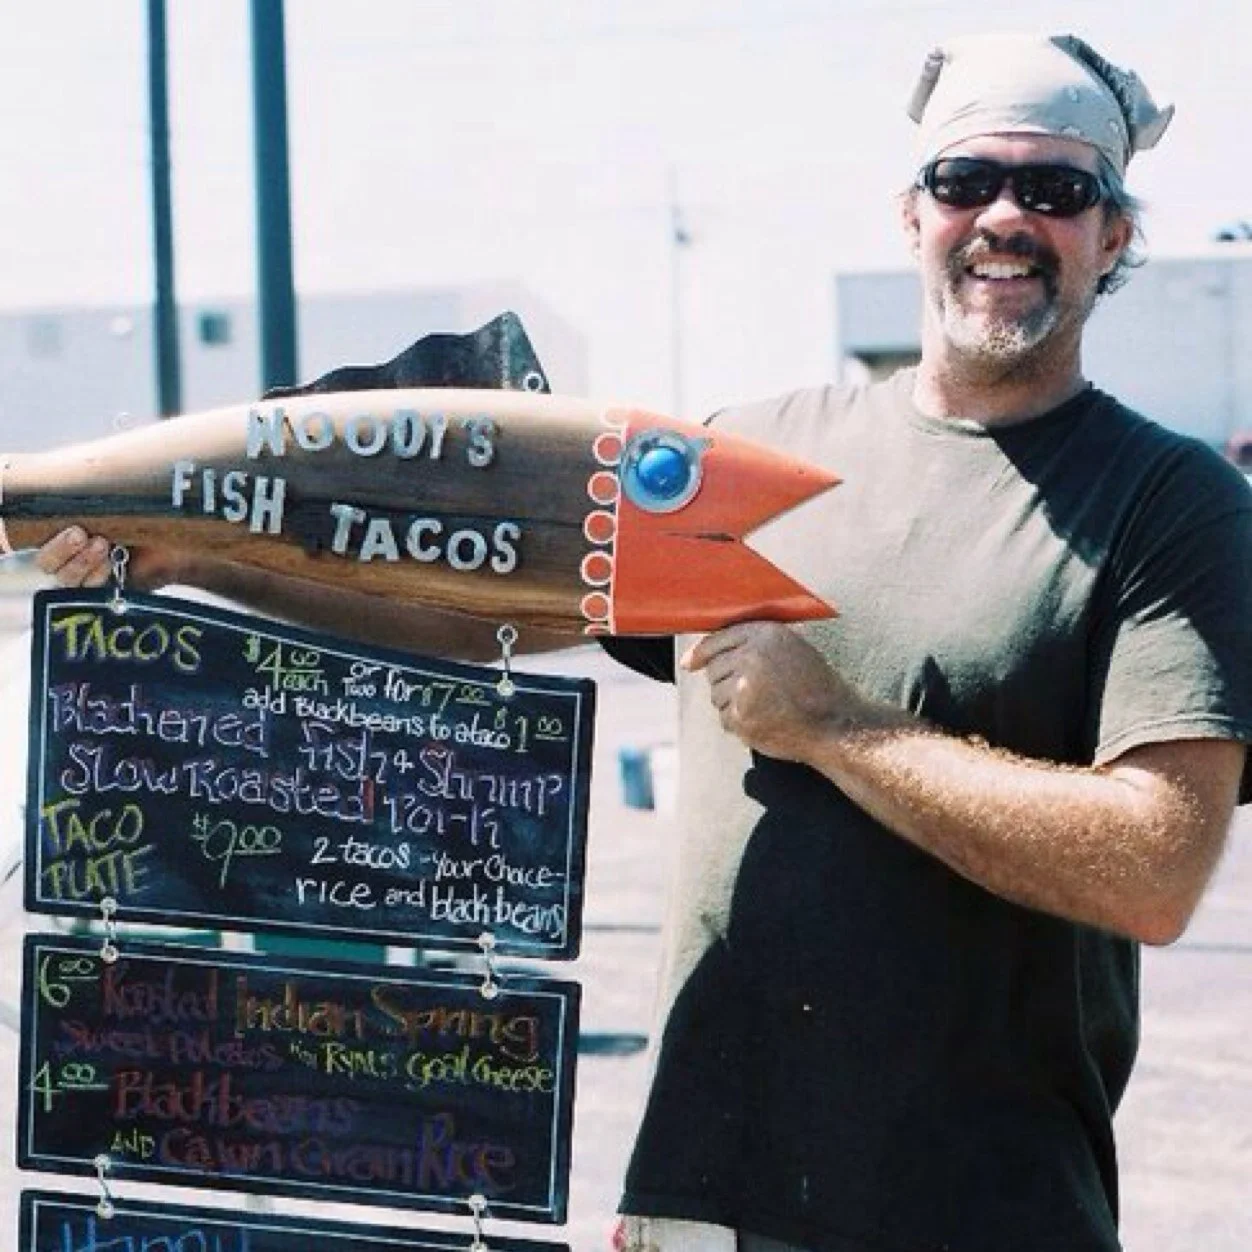 WOODY'S
FISH TACOS
TACOS $4.00 each or Two for $7.00
add Blackbeans to a taco $1.00
Blackened Fish & Shrimp
Slow Roasted Pork
TACO PLATE $9.00 2 tacos - Your Choice -
rice and black beans
6.00 Roasted Indian Spring
Sweet Potatoes Goat Cheese
4.00 Blackbeans
AND Cajun Grain Rice
Happy